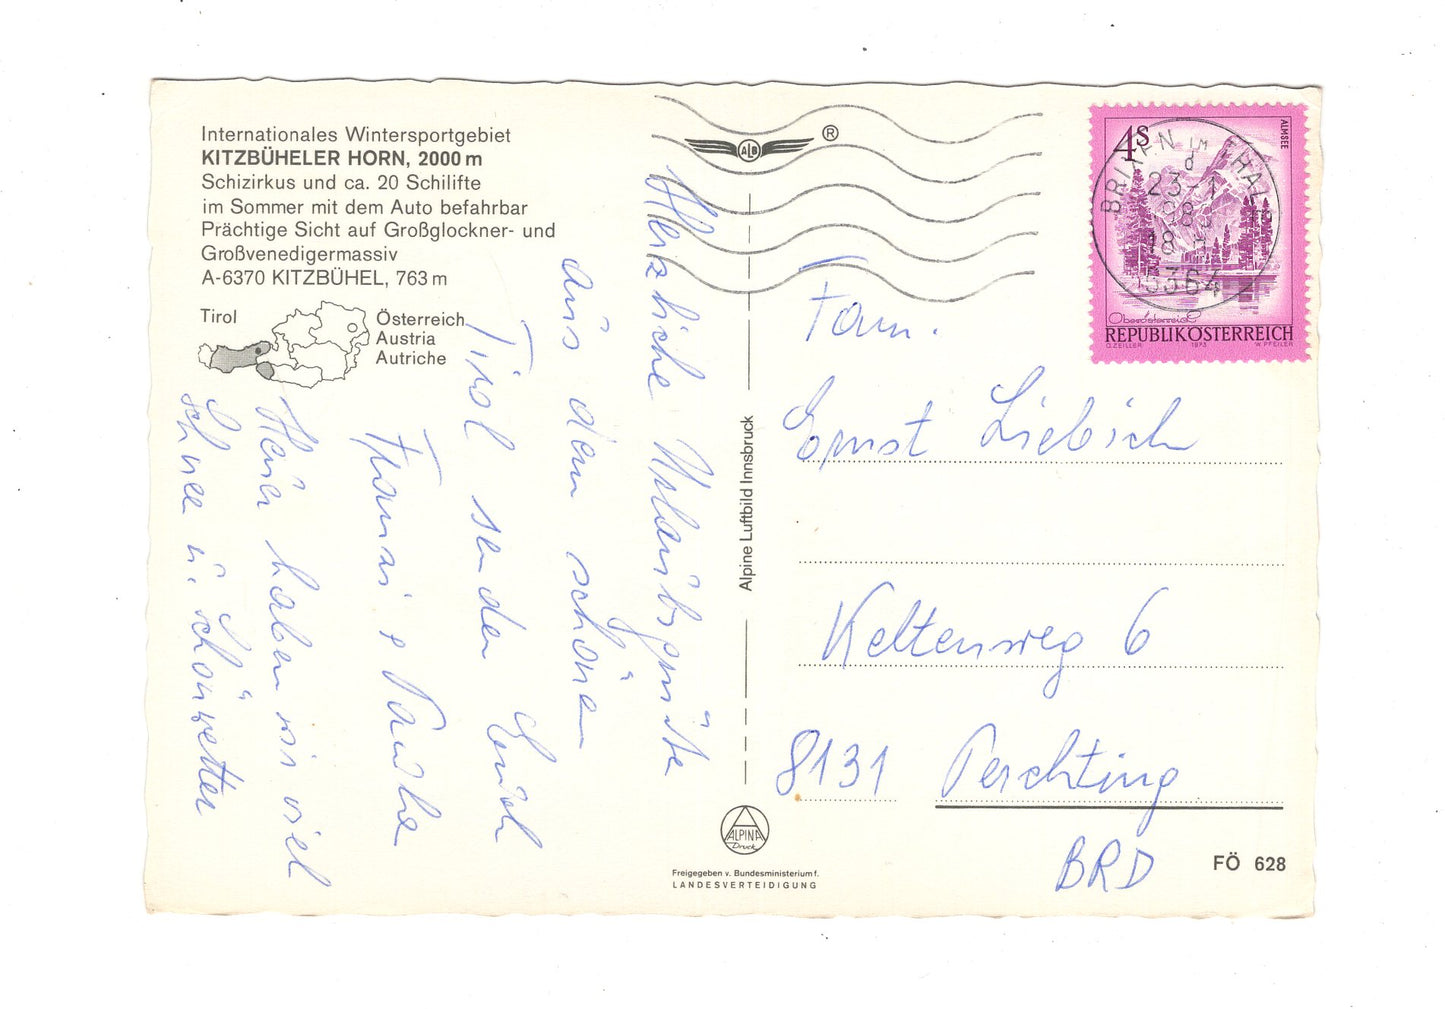 Internationales Wintersportgebiet
KITZBÜHELER HORN, 2000 m
Schizirkus und ca. 20 Schilifte
im Sommer mit dem Auto befahrbar
Prächtige Sicht auf Großglockner- und
Großvenedigermassiv
A-6370 KITZBÜHEL, 763 m
Tirol
Österreich
Austria
Autriche
Herzliche Urlaubsgrüße
aus dem schönen
Tirol senden Euch
Heuer haben wir viel
Schnee u. Schönwetter
ALB
®
Alpine Luftbild Innsbruck
ALPINA
Druck
Freigegeben v. Bundesministerium f.
LANDESVERTEIDIGUNG
4S
ALMSEE
Oberösterreich
REPUBLIK ÖSTERREICH
O. ZEILLER 1973 W. PFEILER
BRIXEN IM THALE
d
23-1
18
6364
Fam.
Ernst Liebich
Keltenweg 6
8131 Perchting
BRD
FÖ 628